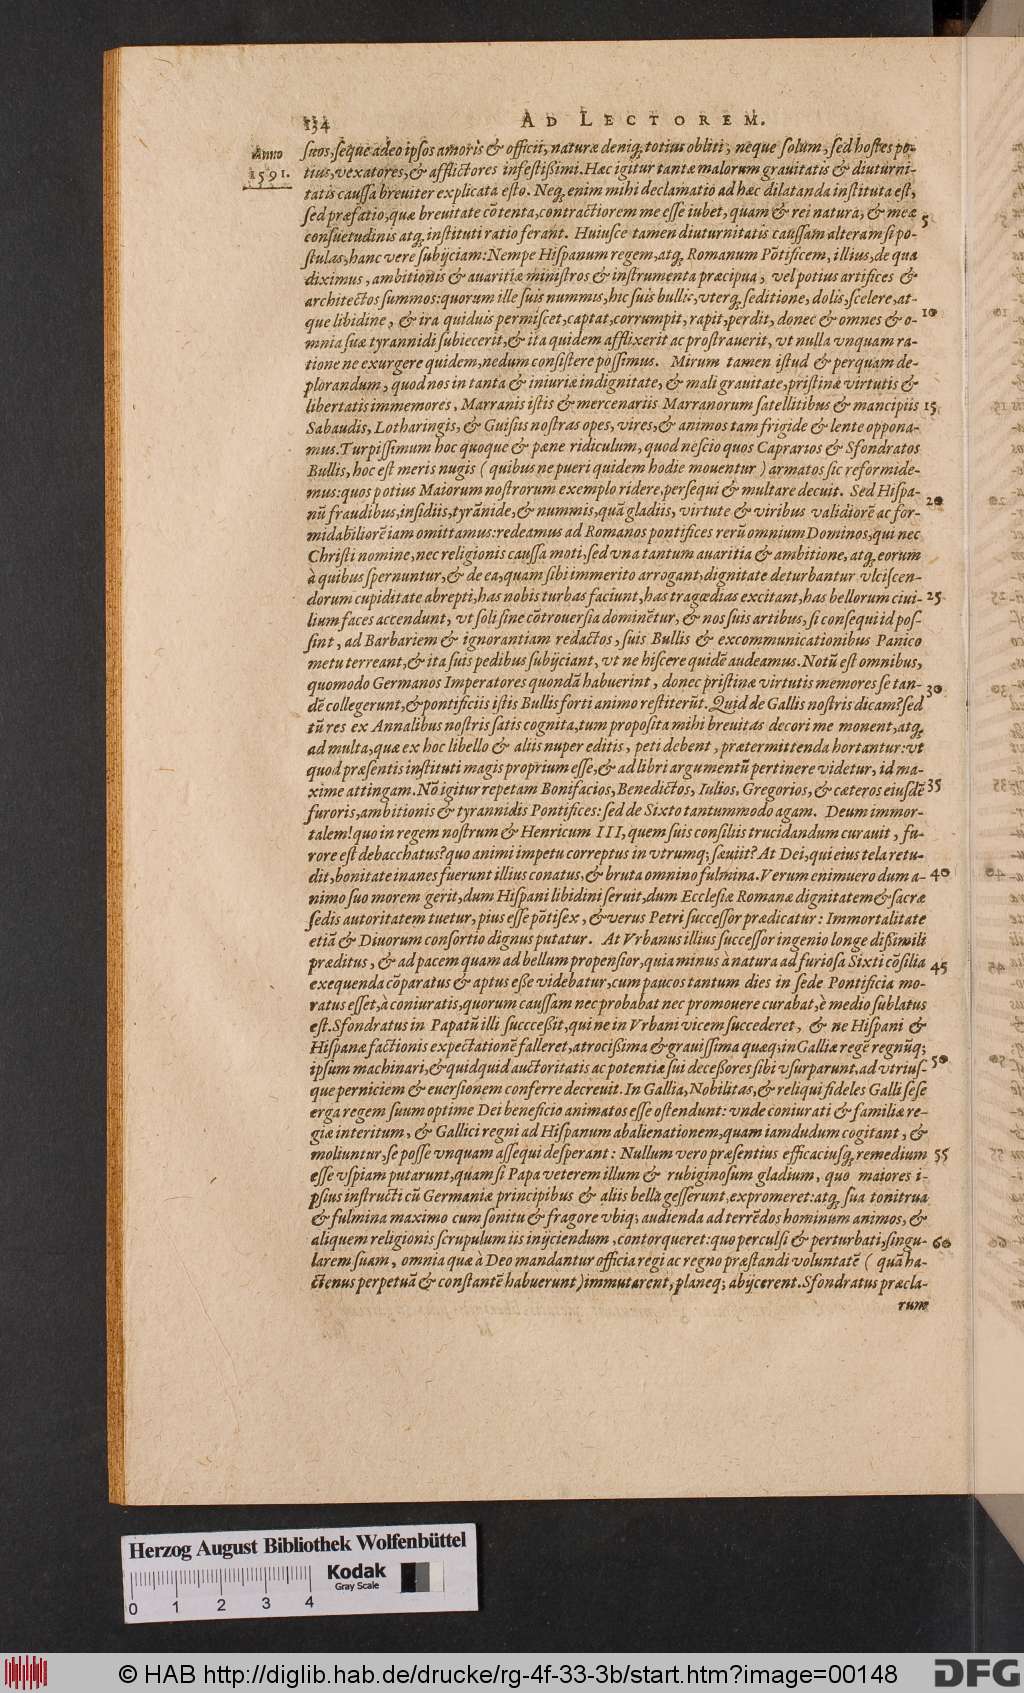 134 AD LECTOREM.
Anno
1591.
suos, seque adeo ipsos amoris & officii, naturæ deniq; totius obliti, neque solum, sed hostes po-
tius, vexatores, & afflictores infestißimi. Hæc igitur tantæ malorum grauitatis & diuturni-
tatis caussa breuiter explicata esto. Neq; enim mihi declamatio ad hæc dilatanda instituta est,
sed præfatio, quæ breuitate cōtenta, contractiorem me esse iubet, quam & rei natura, & meæ 5
consuetudinis atq; instituti ratio ferant. Huiusce tamen diuturnitatis caussam alteram si po-
stulas, hanc vere subijciam: Nempe Hispanum regem, atq; Romanum Pōtificem, illius, de qua
diximus, ambitionis & auaritiæ ministros & instrumenta præcipua, vel potius artifices &
architectos summos: quorum ille suis nummis, hic suis bullis, vterq; seditione, dolis, scelere, at-
que libidine, & ira quiduis permiscet, captat, corrumpit, rapit, perdit, donec & omnes & o- 10
mnia suæ tyrannidi subiecerit, & ita quidem afflixerit ac prostrauerit, vt nulla vnquam ra-
tione ne exurgere quidem, nedum consistere possimus. Mirum tamen istud & perquam de-
plorandum, quod nos in tanta & iniuriæ indignitate, & mali grauitate, pristinæ virtutis &
libertatis immemores, Marranis istis & mercenariis Marranorum satellitibus & mancipiis 15
Sabaudis, Lotharingis, & Guisiis nostras opes, vires, & animos tam frigide & lente oppona-
mus. Turpissimum hoc quoque & pæne ridiculum, quod nescio quos Caprarios & Sfondratos
Bullis, hoc est meris nugis ( quibus ne pueri quidem hodie mouentur ) armatos sic reformide-
mus: quos potius Maiorum nostrorum exemplo ridere, persequi & multare decuit. Sed Hispa-
nū fraudibus, insidiis, tyrānide, & nummis, quā gladiis, virtute & viribus validiorē ac for- 20
midabiliorē iam omittamus: redeamus ad Romanos pontifices rerū omnium Dominos, qui nec
Christi nomine, nec religionis caussa moti, sed vna tantum auaritia & ambitione, atq; eorum
à quibus spernuntur, & de ea, quam sibi immerito arrogant, dignitate deturbantur vlciscen-
dorum cupiditate abrepti, has nobis turbas faciunt, has tragœdias excitant, has bellorum ciui- 25
lium faces accendunt, vt soli sine cōtrouersia dominētur, & nos suis artibus, si consequi id pos-
sint, ad Barbariem & ignorantiam redactos, suis Bullis & excommunicationibus Panico
metu terreant, & ita suis pedibus subijciant, vt ne hiscere quidē audeamus. Notū est omnibus,
quomodo Germanos Imperatores quondā habuerint, donec pristinæ virtutis memores se tan- 30
dē collegerunt, & pontificiis istis Bullis forti animo restiterūt. Quid de Gallis nostris dicam? sed
tū res ex Annalibus nostris satis cognita, tum proposita mihi breuitas decori me monent, atq;
ad multa, quæ ex hoc libello & aliis nuper editis, peti debent, prætermittenda hortantur: vt
quod præsentis instituti magis proprium esse, & ad libri argumentū pertinere videtur, id ma-
xime attingam. Nō igitur repetam Bonifacios, Benedictos, Iulios, Gregorios, & cæteros eiusdē 35
furoris, ambitionis & tyrannidis Pontifices: sed de Sixto tantummodo agam. Deum immor-
talem! quo in regem nostrum & Henricum III, quem suis consiliis trucidandum curauit, fu-
rore est debacchatus? quo animi impetu correptus in vtrumq; sæuiit? At Dei, qui eius tela retu-
dit, bonitate inanes fuerunt illius conatus, & bruta omnino fulmina. Verum enimuero dum a- 40
nimo suo morem gerit, dum Hispani libidini seruit, dum Ecclesiæ Romanæ dignitatem & sacræ
sedis autoritatem tuetur, pius esse pōtifex, & verus Petri successor prædicatur: Immortalitate
etiā & Diuorum consortio dignus putatur. At Vrbanus illius successor ingenio longe dißimili
præditus, & ad pacem quam ad bellum propensior, quia minus à natura ad furiosa Sixti cōsilia 45
exequenda cōparatus & aptus eße videbatur, cum paucos tantum dies in sede Pontificia mo-
ratus esset, à coniuratis, quorum caussam nec probabat nec promouere curabat, è medio sublatus
est. Sfondratus in Papatū illi succceßit, qui ne in Vrbani vicem succederet, & ne Hispani &
Hispanæ factionis expectationē falleret, atrocißima & grauissima quæq; in Galliæ regē regnūq;
ipsum machinari, & quidquid auctoritatis ac potentiæ sui deceßores sibi vsurparunt, ad vtrius- 50
que perniciem & euersionem conferre decreuit. In Gallia, Nobilitas, & reliqui fideles Galli sese
erga regem suum optime Dei beneficio animatos esse ostendunt: vnde coniurati & familiæ re-
giæ interitum, & Gallici regni ad Hispanum abalienationem, quam iamdudum cogitant, &
moliuntur, se posse vnquam assequi desperant: Nullum vero præsentius efficaciusq; remedium 55
esse vspiam putarunt, quam si Papa veterem illum & rubiginosum gladium, quo maiores i-
psius instructi cū Germaniæ principibus & aliis bella gesserunt, expromeret: atq; sua tonitrua
& fulmina maximo cum sonitu & fragore vbiq; audienda ad terrēdos hominum animos, &
aliquem religionis scrupulum iis inijciendum, contorqueret: quo perculsi & perturbati, singu- 60
larem suam, omnia quæ à Deo mandantur officia regi ac regno præstandi voluntatē ( quā ha-
ctenus perpetuā & constantē habuerunt ) immutarent, planeq; abijcerent. Sfondratus præcla-
rum
Herzog August Bibliothek Wolfenbüttel
Kodak
Gray Scale
0 1 2 3 4
© HAB http://diglib.hab.de/drucke/rg-4f-33-3b/start.htm?image=00148 DFG